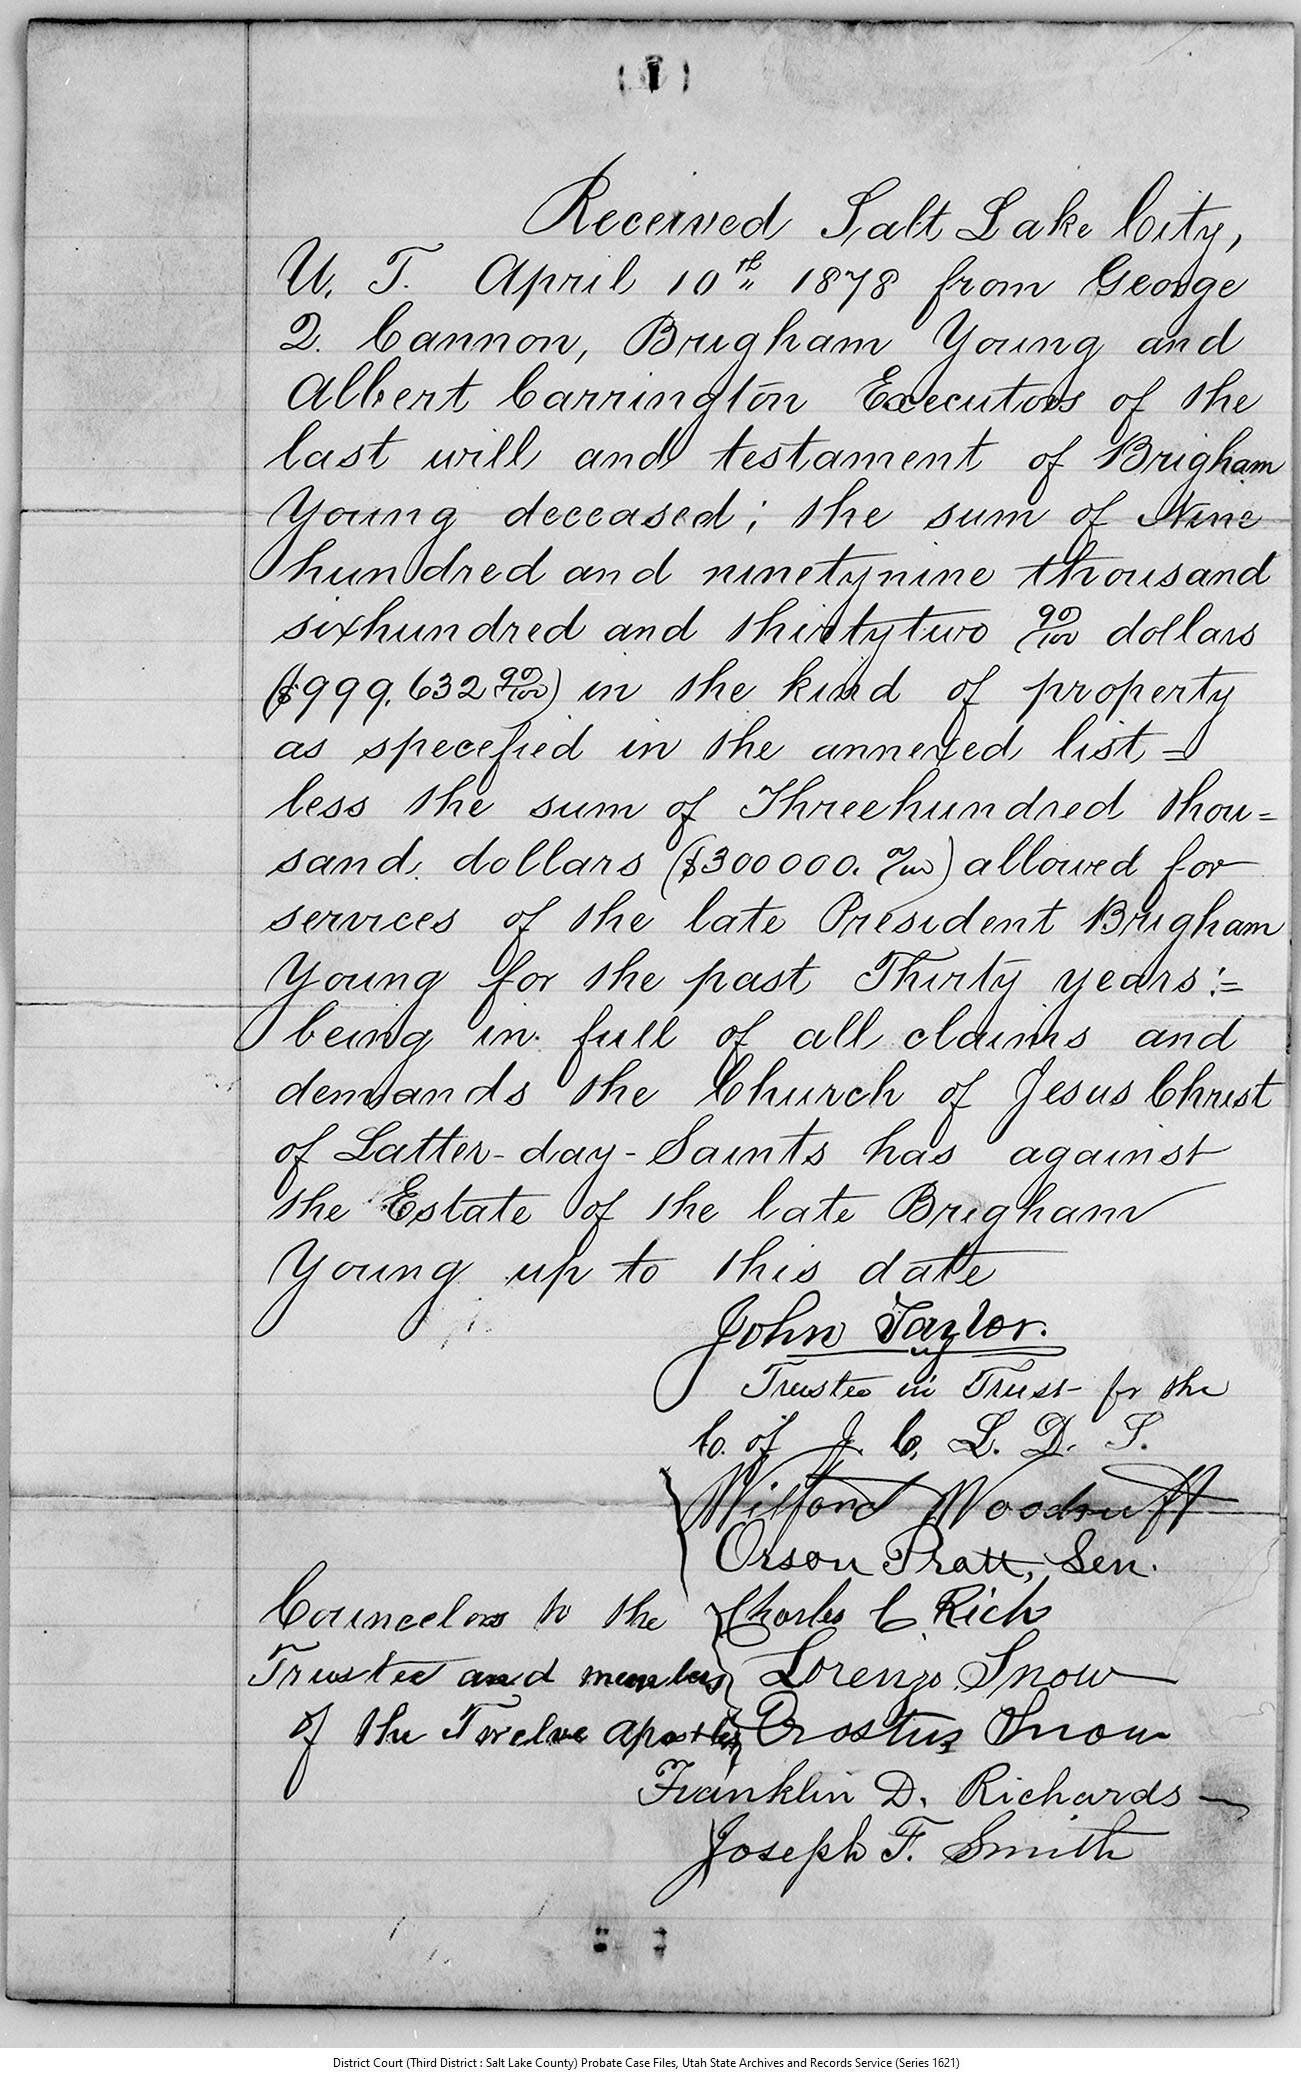 Received Salt Lake City,
U. T. April 10th 1878 from George
Q. Cannon, Brigham Young and
Albert Carrington Executors of the
last will and testament of Brigham
Young deceased; the sum of Nine
hundred and ninetynine thousand
sixhundred and thirtytwo 90/100 dollars
($999,632 90/100) in the kind of property
as specefied in the annexed list =
less the sum of Threehundred thou=
sand dollars ($300000. 0/100) allowed for
services of the late President Brigham
Young for the past Thirty years:=
being in full of all claims and
demands the Church of Jesus Christ
of Latter-day-Saints has against
the Estate of the late Brigham
Young up to this date
John Taylor.
Trustee in Trust for the
C. of J. C. L. D. S.
Wilford Woodruff
Orson Pratt, Sen.
Councelors to the Charles C Rich
Trustee and members Lorenzo Snow
of the Twelve apostles Erastus Snow
Franklin D. Richards
Joseph F. Smith
District Court (Third District : Salt Lake County) Probate Case Files, Utah State Archives and Records Service (Series 1621)